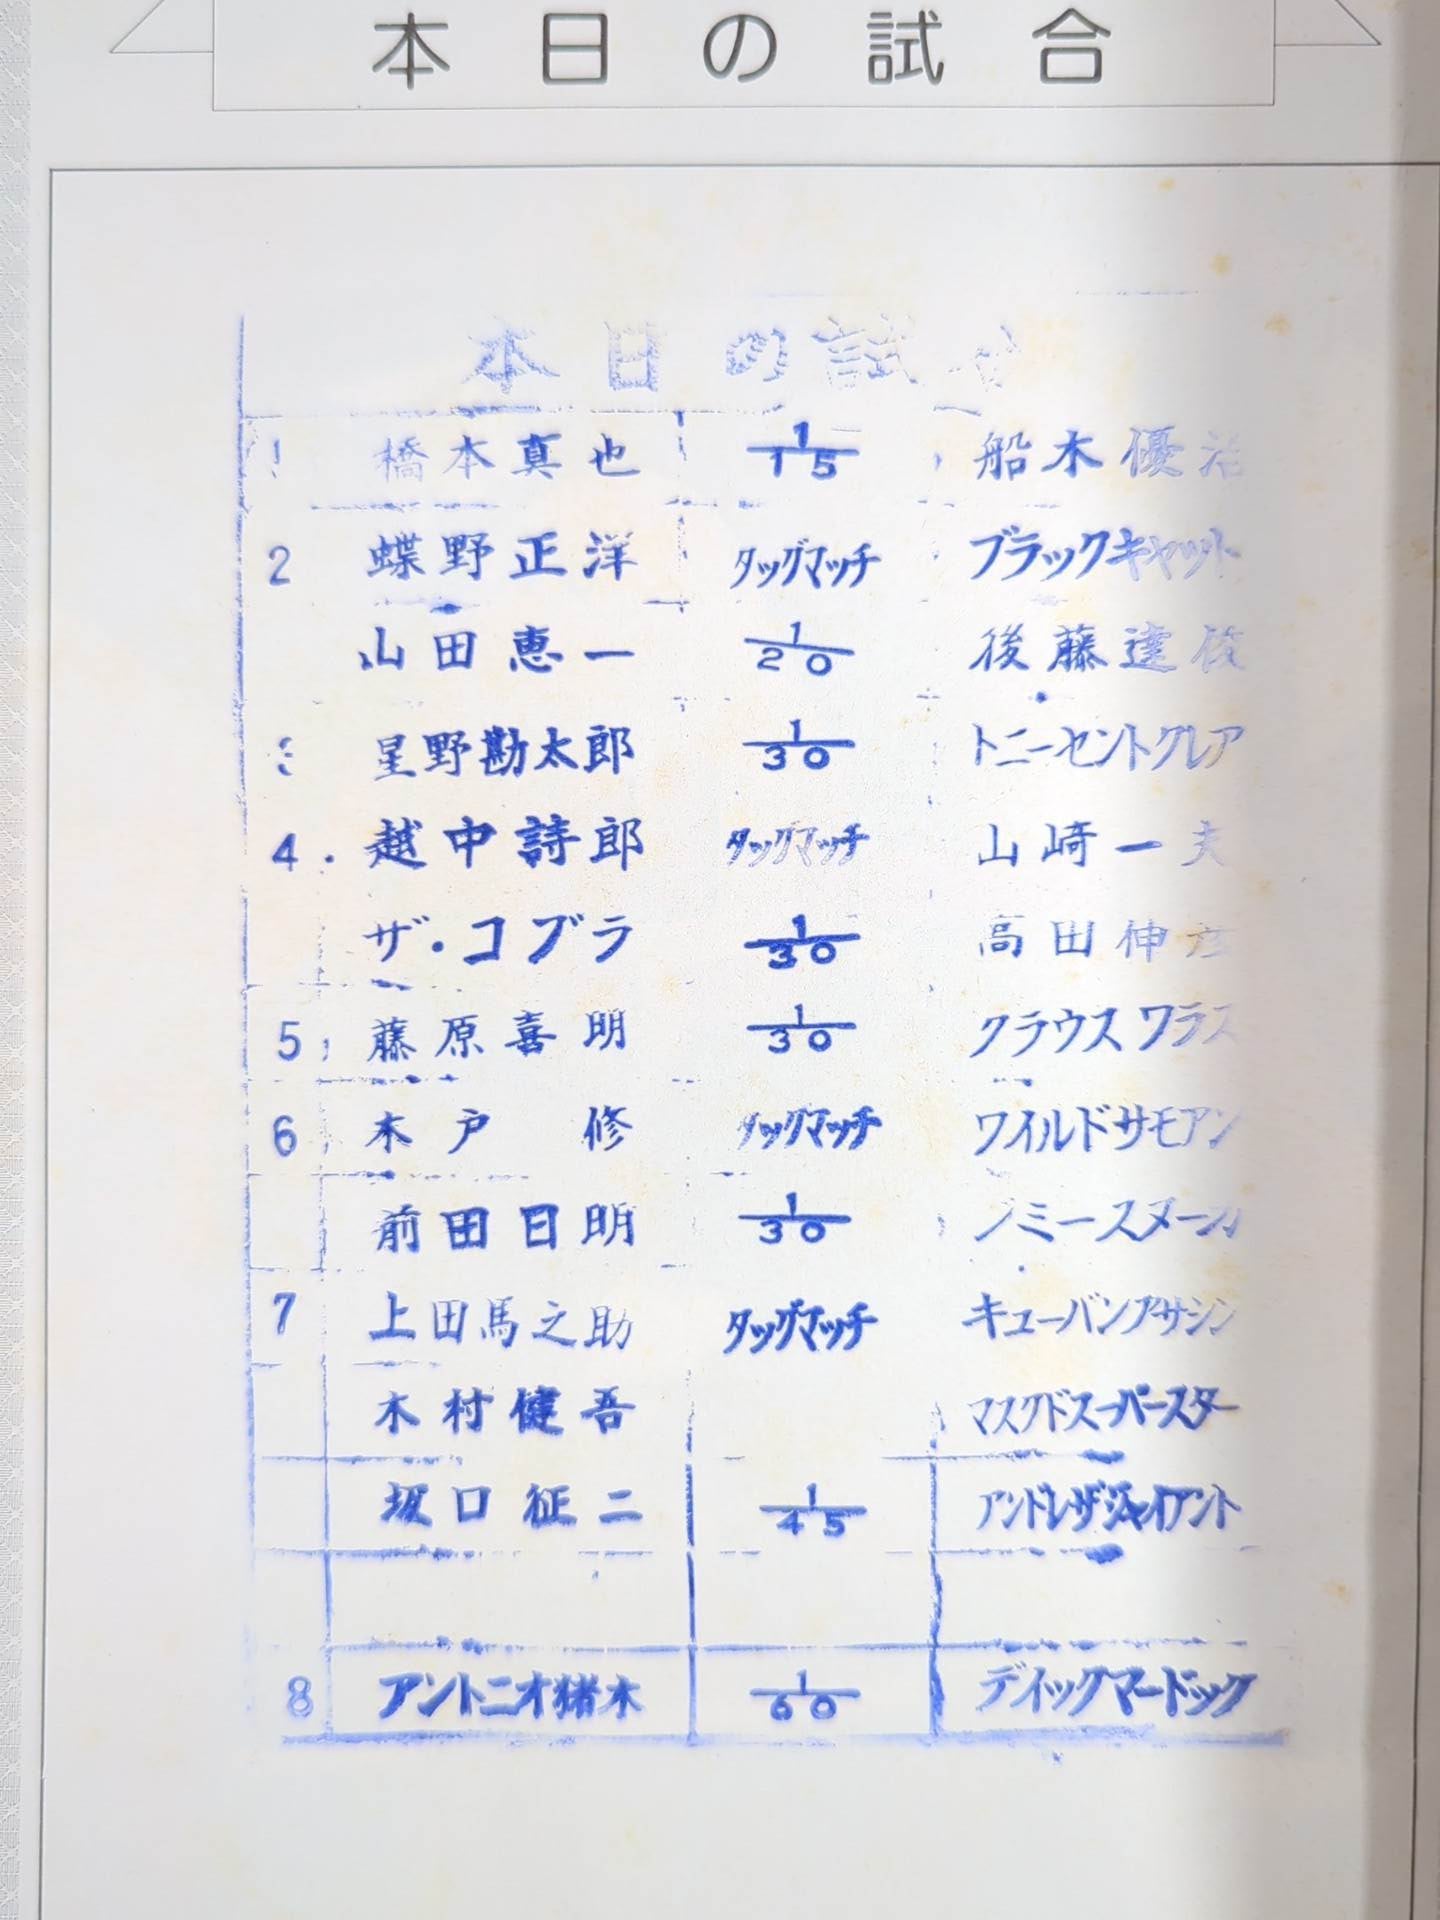 本日の試合
本日の試合
1 橋本真也 1/15 船木優治
2 蝶野正洋 タッグマッチ ブラックキャット
山田恵一 1/20 後藤達俊
3 星野勘太郎 1/30 トニーセントクレア
4. 越中詩郎 タッグマッチ 山崎一夫
ザ・コブラ 1/30 高田伸彦
5 藤原喜明 1/30 クラウスワラス
6 木戸 修 タッグマッチ ワイルドサモアン
前田日明 1/30 ジミースヌーカ
7 上田馬之助 タッグマッチ キューバンアサシン
木村健吾 マスクドスーパースター
坂口征二 1/45 アンドレザジャイアント
8 アントニオ猪木 1/60 デイックマードック